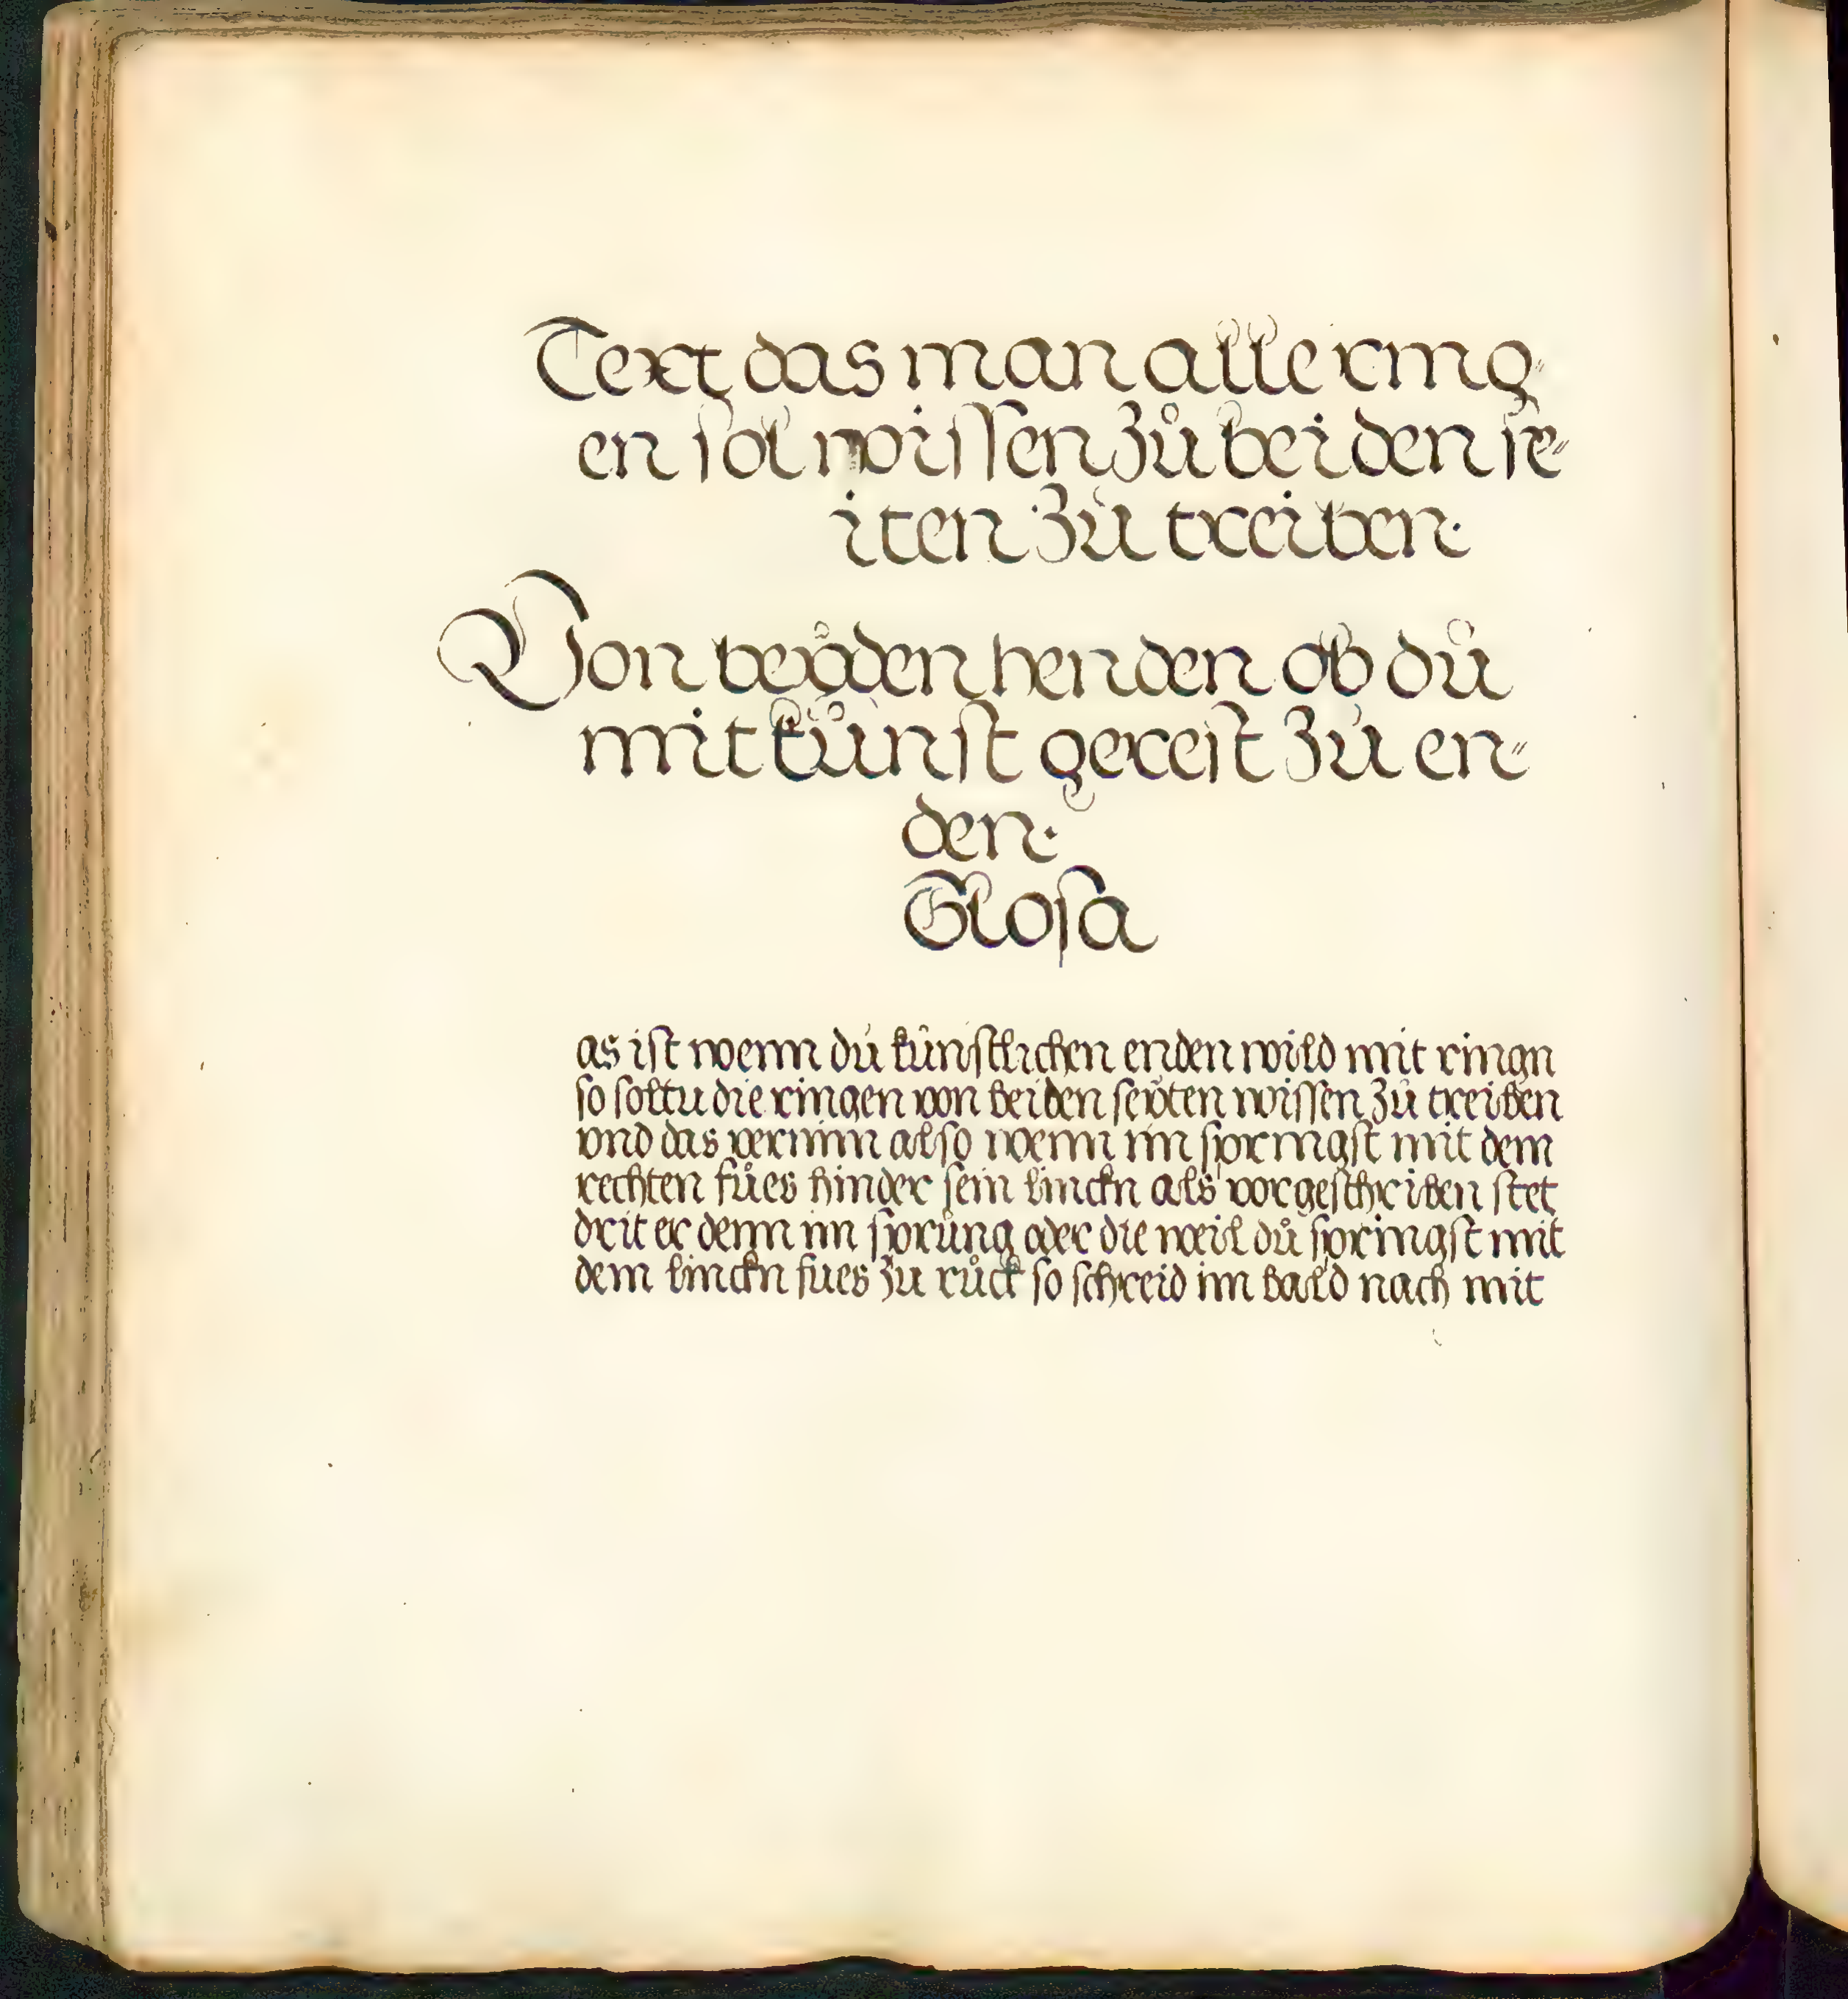 Text das man alle ring⸗
en sol wissen zů beiden se⸗
iten zů treiben·
Von beÿden henden ob dů
mit kůnst gereist zů en⸗
den·
Glosa
as ist wenn dů kůnstlichen enden wild mit ringn
so soltu die ringen von beiden seÿten wissen zů treiben
vnd das vernim also wenn im springst mit dem
rechten fůes hinder sein linckn als vorgeschriben stet
drit er denn im sprůng oder die weil dů springst mit
dem linckn fues zu růck so schreid im bald nach mit